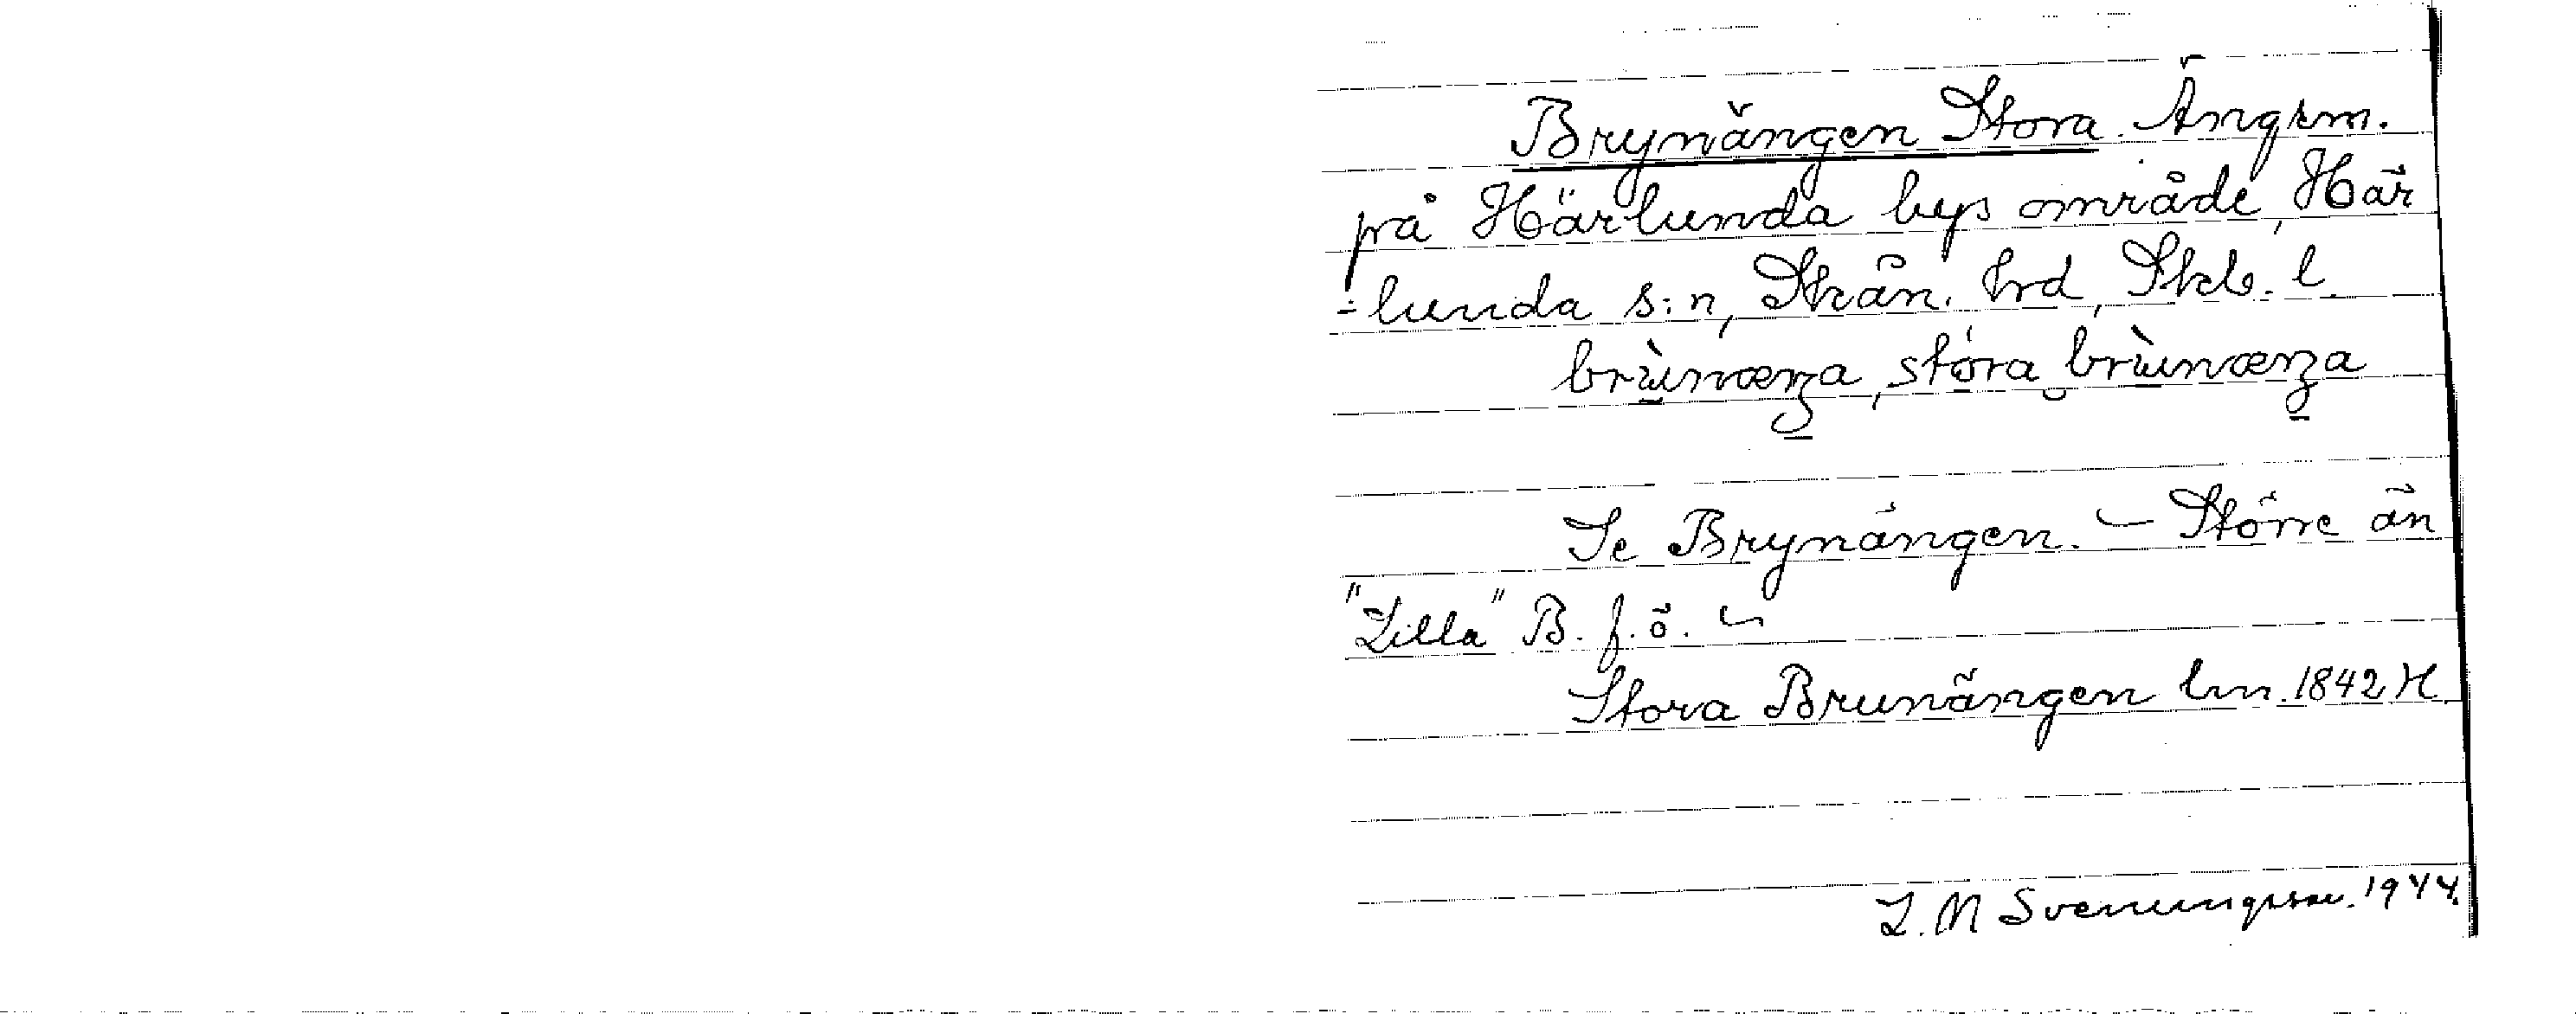 Brynängen Stora. Ängsm.
på Härlunda bys område, Här
=lunda s:n, Skån. hrd, Skb. l.
stóra
Se Brynängen. – Större än
"Lilla" B. f.ö. –
Stora Brunängen lm. 1842 H.
L. M Svenungsson. 1944.